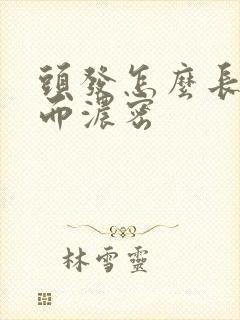 頭發怎麼長
而濃密
林雪靈